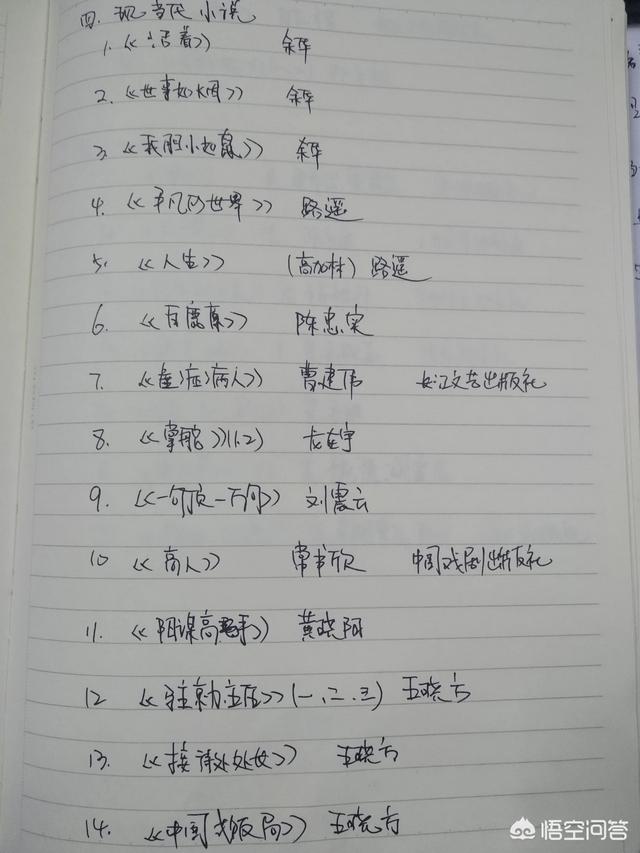 四. 现当代小说
1. 《活着》 余华
2. 《世事如烟》 余华
3. 《我胆小如鼠》 余华
4. 《平凡的世界》 路遥
5. 《人生》 (高加林) 路遥
6. 《白鹿原》 陈忠实
7. 《重症病人》 曹建伟 长江文艺出版社
8. 《掌舵》(1.2) 龙在宇
9. 《一句顶一万句》 刘震云
10 《高人》 常书欣 中国戏剧出版社
11. 《阳谋高手》 黄晓阳
12 《驻京办主任》(一、二、三) 王晓方
13. 《接待处处长》 王晓方
14. 《中国式饭局》 王晓方
悟空问答